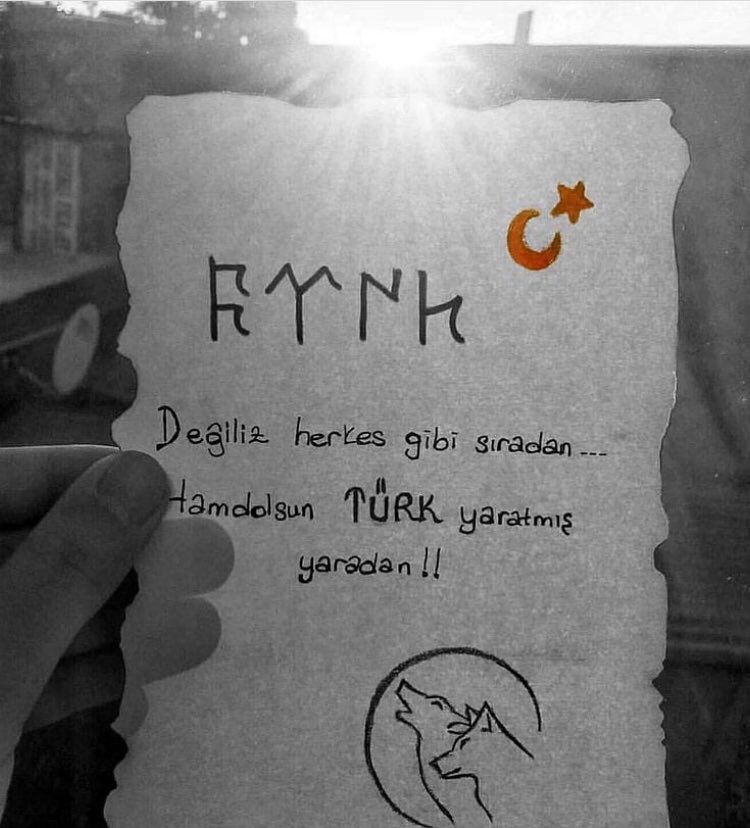 𐱅𐰇𐰼𐰰
Değiliz herkes gibi sıradan...
Hamdolsun TÜRK yaratmış
yaradan!!